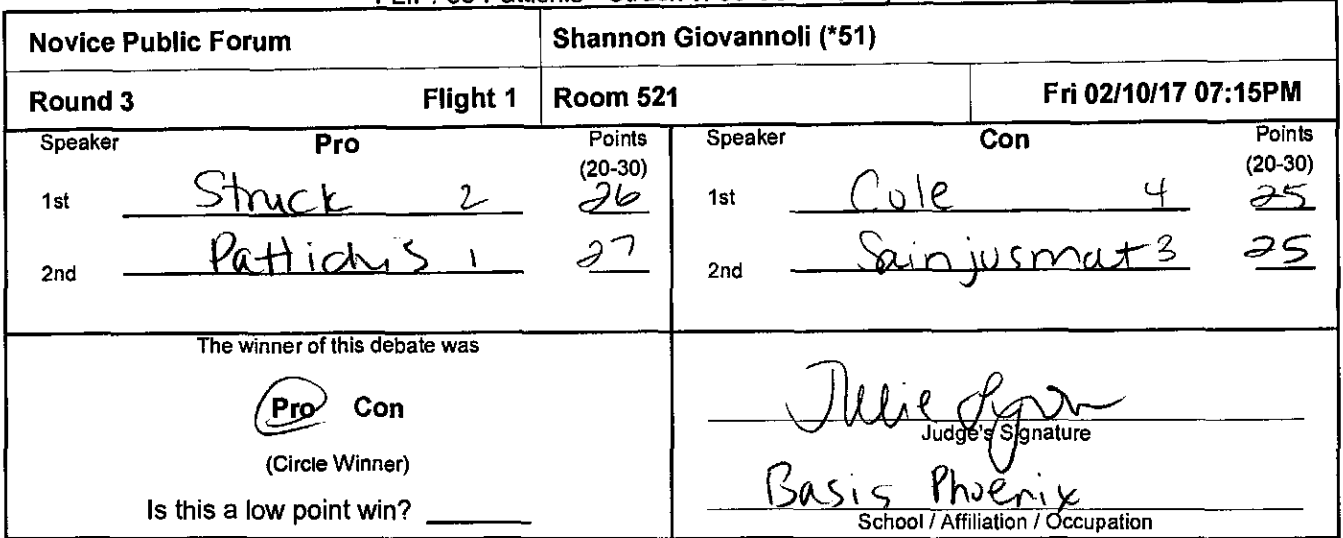 Novice Public Forum Shannon Giovannoli (*51)
Round 3 Flight 1 Room 521 Fri 02/10/17 07:15PM
Speaker Pro Points (20-30)
1st Struck 2 26
2nd Pattichis 1 27
Speaker Con Points (20-30)
1st Cole 4 25
2nd Sainjusmat 3 25
The winner of this debate was
Pro Con
(Circle Winner)
Is this a low point win?
Judge's Signature
Basis Phoenix
School / Affiliation / Occupation